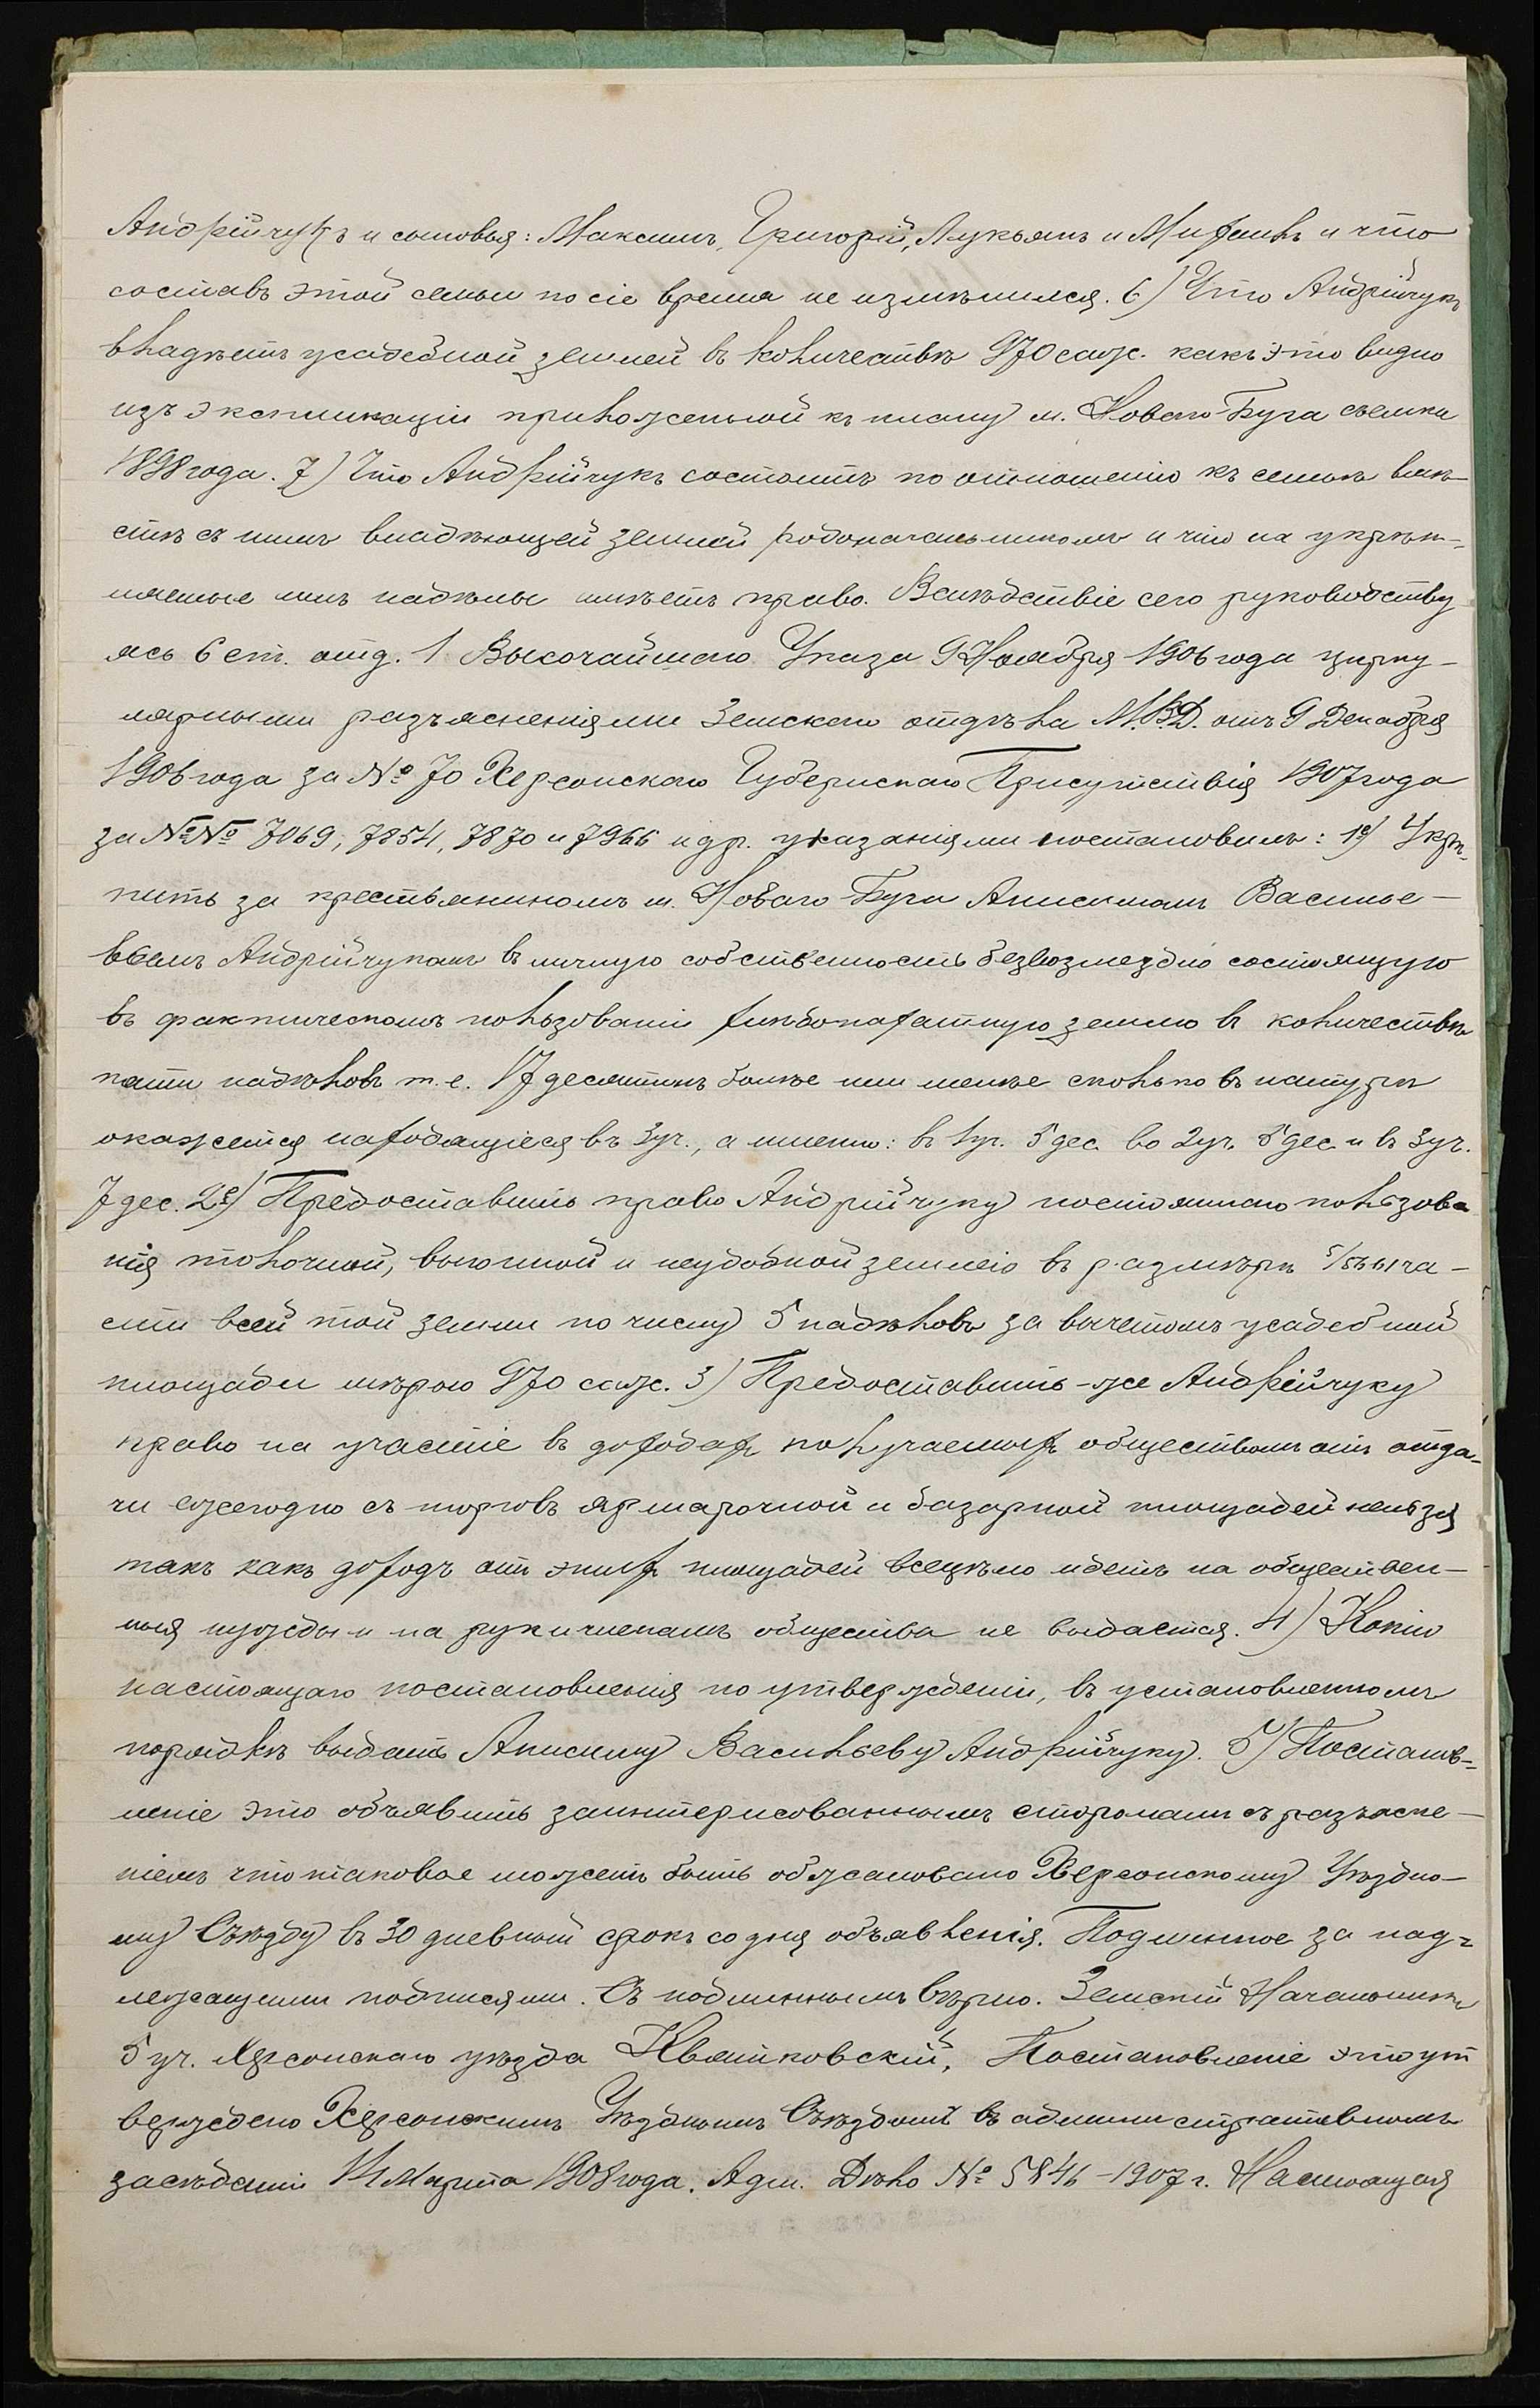 Андрійчукъ и сыновья: Максимъ, Григорій, Лукьянъ и Михаилъ и что
составъ этой семьи по сіе время не измѣнился. 6) Что Андрійчукъ
владѣетъ усадебной землей въ количествѣ 970 саж. какъ это видно
изъ экспликаціи приложенной къ плану м. Новаго-Буга съемки
1898 года. 7) Что Андрійчукъ состоитъ по отношенію къ семьѣ вмѣ-
стѣ съ нимъ владѣющей землей родоначальникомъ и что на укрѣп-
ляемые имъ надѣлы имѣетъ право. Вслѣдствіе сего руководству
ясь 6 ст. отд. 1 Высочайшаго Указа 9 Ноября 1906 года цирку-
лярными разъясненіями Земскаго отдѣла М.В.Д. отъ 9 Декабря
1906 года за № 70 Херсонскаго Губернскаго Присутствія 1907 года
за №№ 7069, 7854, 7870 и 7966 и др. указаніями постановилъ: 1е) Укрѣ-
пить за крестьяниномъ м. Новаго-Буга Анисимомъ Василье-
вымъ Андрійчукомъ въ личную собственность безвозмездно состоящую
въ фактическомъ пользованіи хлѣбопахатную землю въ количествѣ
пяти надѣловъ т.е. 17 десятинъ болѣе или менѣе сколько въ натурѣ
окажется находящіеся въ 3 уч., а именно: въ 1 уч. 5 дес. во 2 уч. 5 дес. и въ 3 уч.
7 дес. 2е) Предоставить право Андрійчуку постояннаго пользова
нія толочной, выгонной и неудобной землею въ размѣрѣ ча-
сти всей той земли по числу 5 надѣловъ за вычетомъ усадебной
площади мѣрою 970 саж. 3) Предоставить-же Андрійчуку
право на участіе въ доходахъ получаемыхъ обществомъ отъ отда-
чи ежегодно съ торговъ ярмарочной и базарной площадей нельзя
такъ какъ доходъ отъ этихъ площадей всецѣло идетъ на обществен-
ныя нужды и на руки членамъ общества не выдается. 4) Копію
настоящаго постановленія по утвержденіи, въ установленномъ
порядкѣ выдать Анисиму Васильеву Андрійчуку. 5) Постанов-
леніе это объявить заинтерисованнымъ сторонамъ съ разъясне-
ніемъ что таковое можетъ быть обжаловано Херсонскому Уѣздно-
му Съѣзду въ 30 дневный срокъ со дня объявленія. Подлинное за над-
лежащими подписями. Съ подлиннымъ вѣрно. Земскій Начальникъ
5 уч. Херсонскаго уѣзда Квятковскій. Постановленіе это ут
верждено Херсонскимъ Уѣзднымъ Съѣздомъ въ административномъ
засѣданіи Марта 1908 года. Адм. Дѣло № 5846 - 1907 г. Настоящая